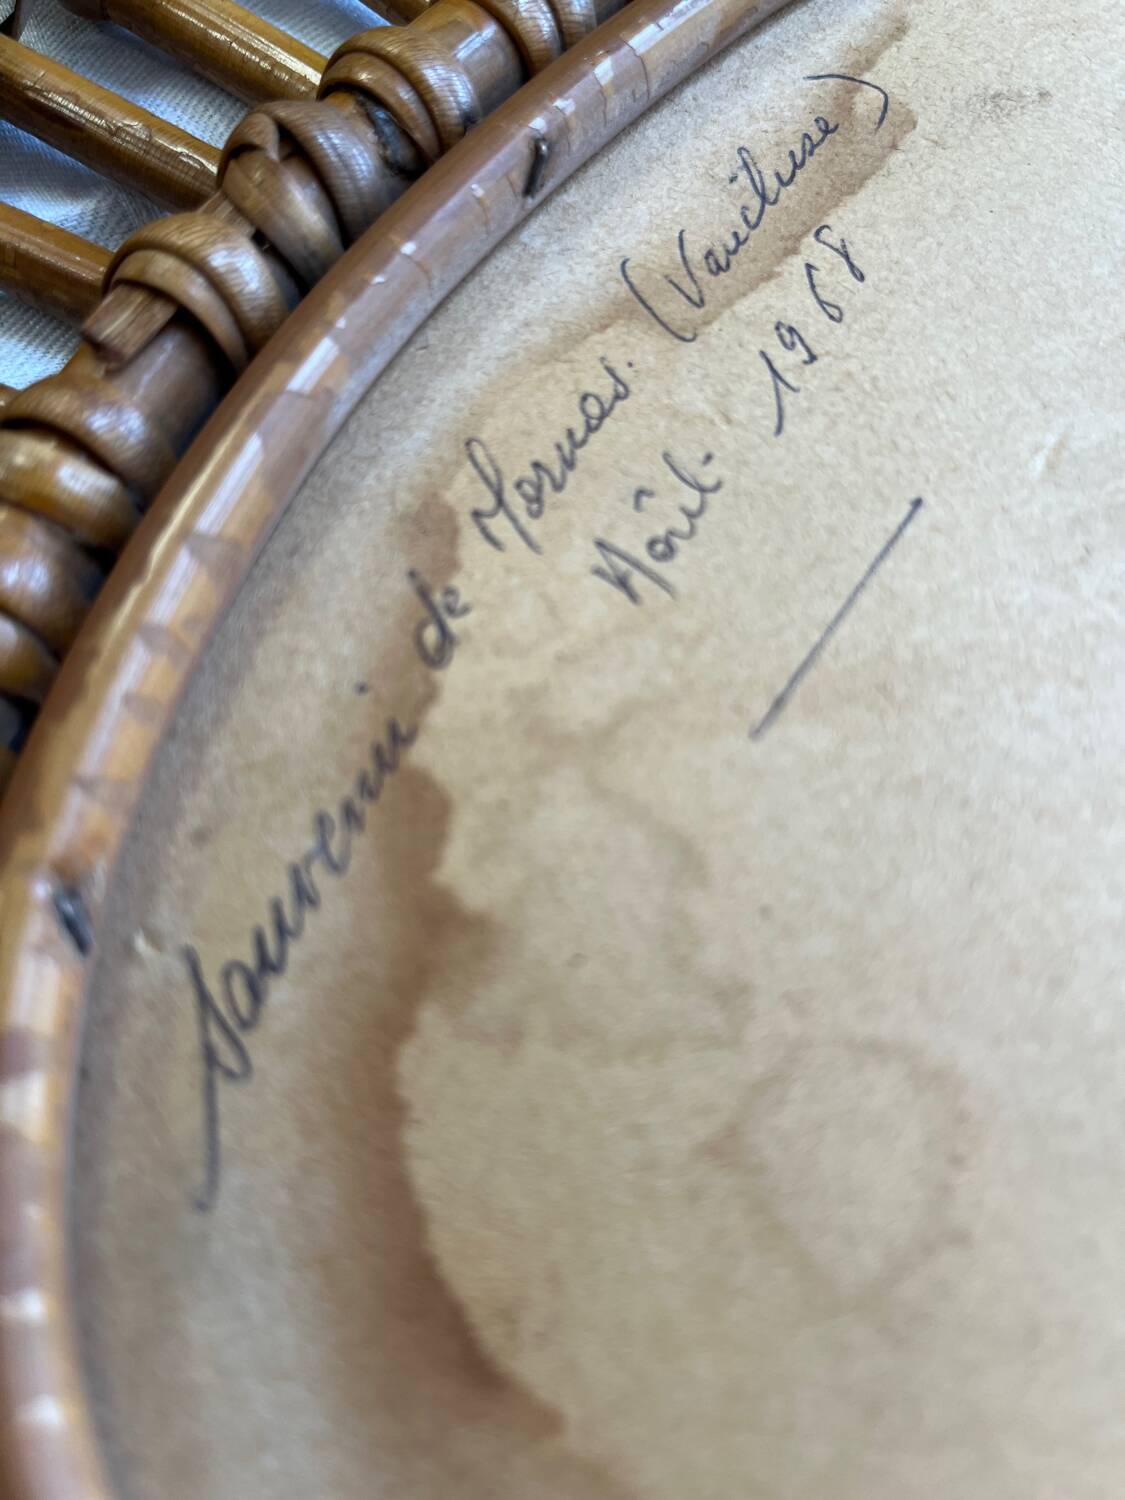 Souvenir de Mornas. (Vaucluse)
Août - 1968